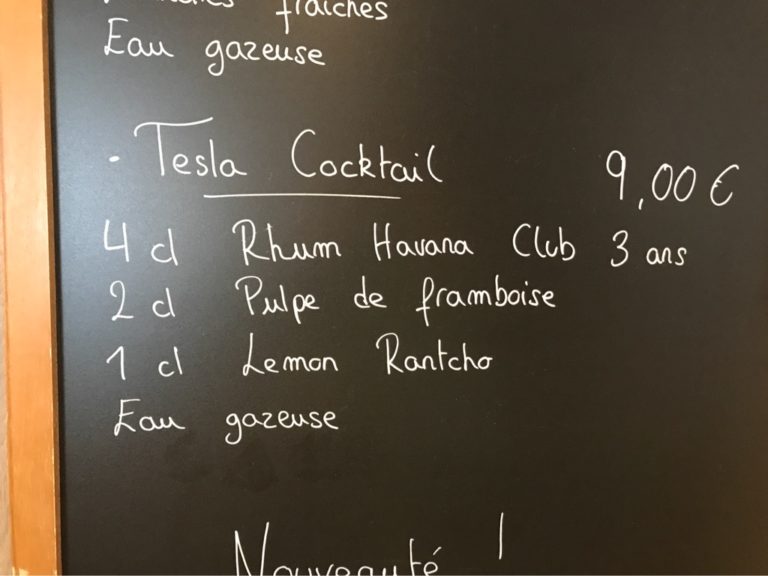 fraîches
Eau gazeuse
· Tesla Cocktail 9,00 €
4 cl Rhum Havana Club 3 ans
2 cl Pulpe de framboise
1 cl Lemon Rantcho
Eau gazeuse
Nouveauté !